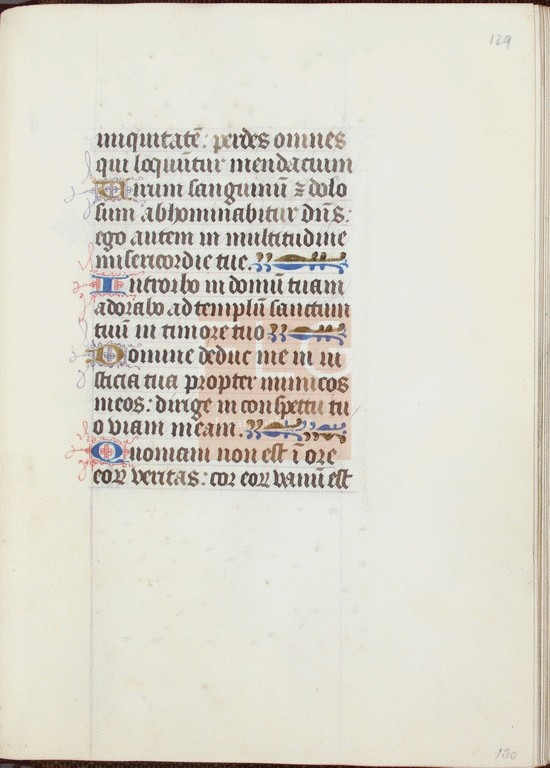 129
iniquitatē: perdes omnes
qui loquūtur mendacium
Uirum sanguinū ⁊ dolo
sum abhominabitur dn̄s:
ego autem in multitudine
misericordie tue.
Introibo in domū tuam
adorabo ad templū sanctum
tuū in timore tuo
Domine deduc me in iu
sticia tua propter inimicos
meos: dirige in conspectu tu
o viam meam.
Quoniam non est ī ore
eoꝝ veritas: cor eoꝝ vanū est
130